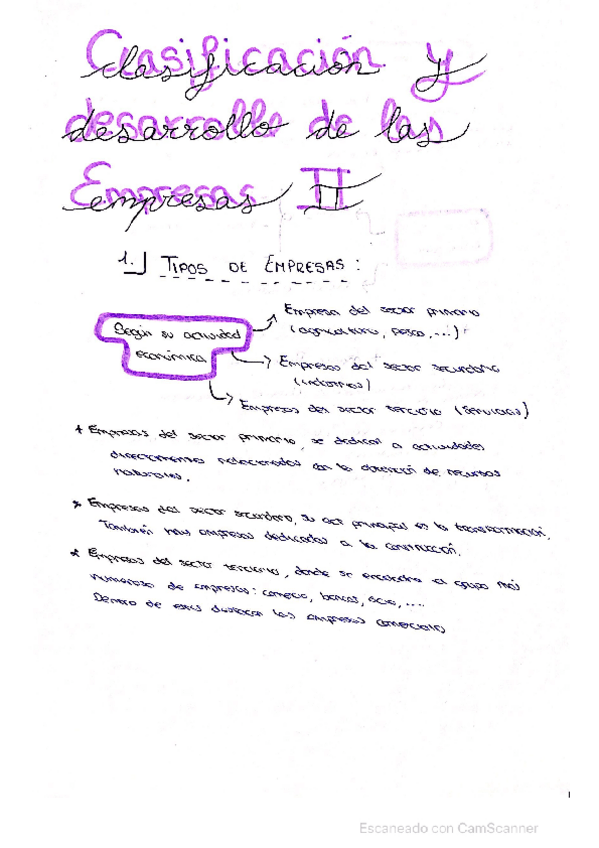 Clasificación y
desarrollo de las
Empresas II
1. TIPOS DE EMPRESAS:
Según su actividad
económica
Empresa del sector primario
(agricultura, pesca,...)
Empresas del sector secundario
(industrias)
Empresas del sector terciario (servicios)
* Empresas del sector primario, se dedican a actividades
directamente relacionadas con la obtención de recursos
naturales.
* Empresas del sector secundario, su act principal es la transformación.
También hay empresas dedicadas a la construcción.
* Empresas del sector terciario, donde se encuentra el grupo más
numeroso de empresas: comercio, bancos, ....
Dentro de estas destacan las empresas comerciales
1
Escaneado con CamScanner